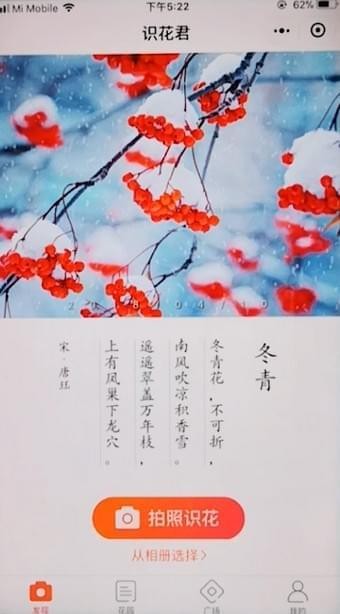 Mi Mobile
下午5:22
62%
识花君
2018/04/10
冬青
冬青花，不可折，
南风吹凉积香雪。
遥遥翠盖万年枝，
上有凤巢下龙穴。
宋·唐珏
拍照识花
从相册选择>
发现
花园
广场
我的